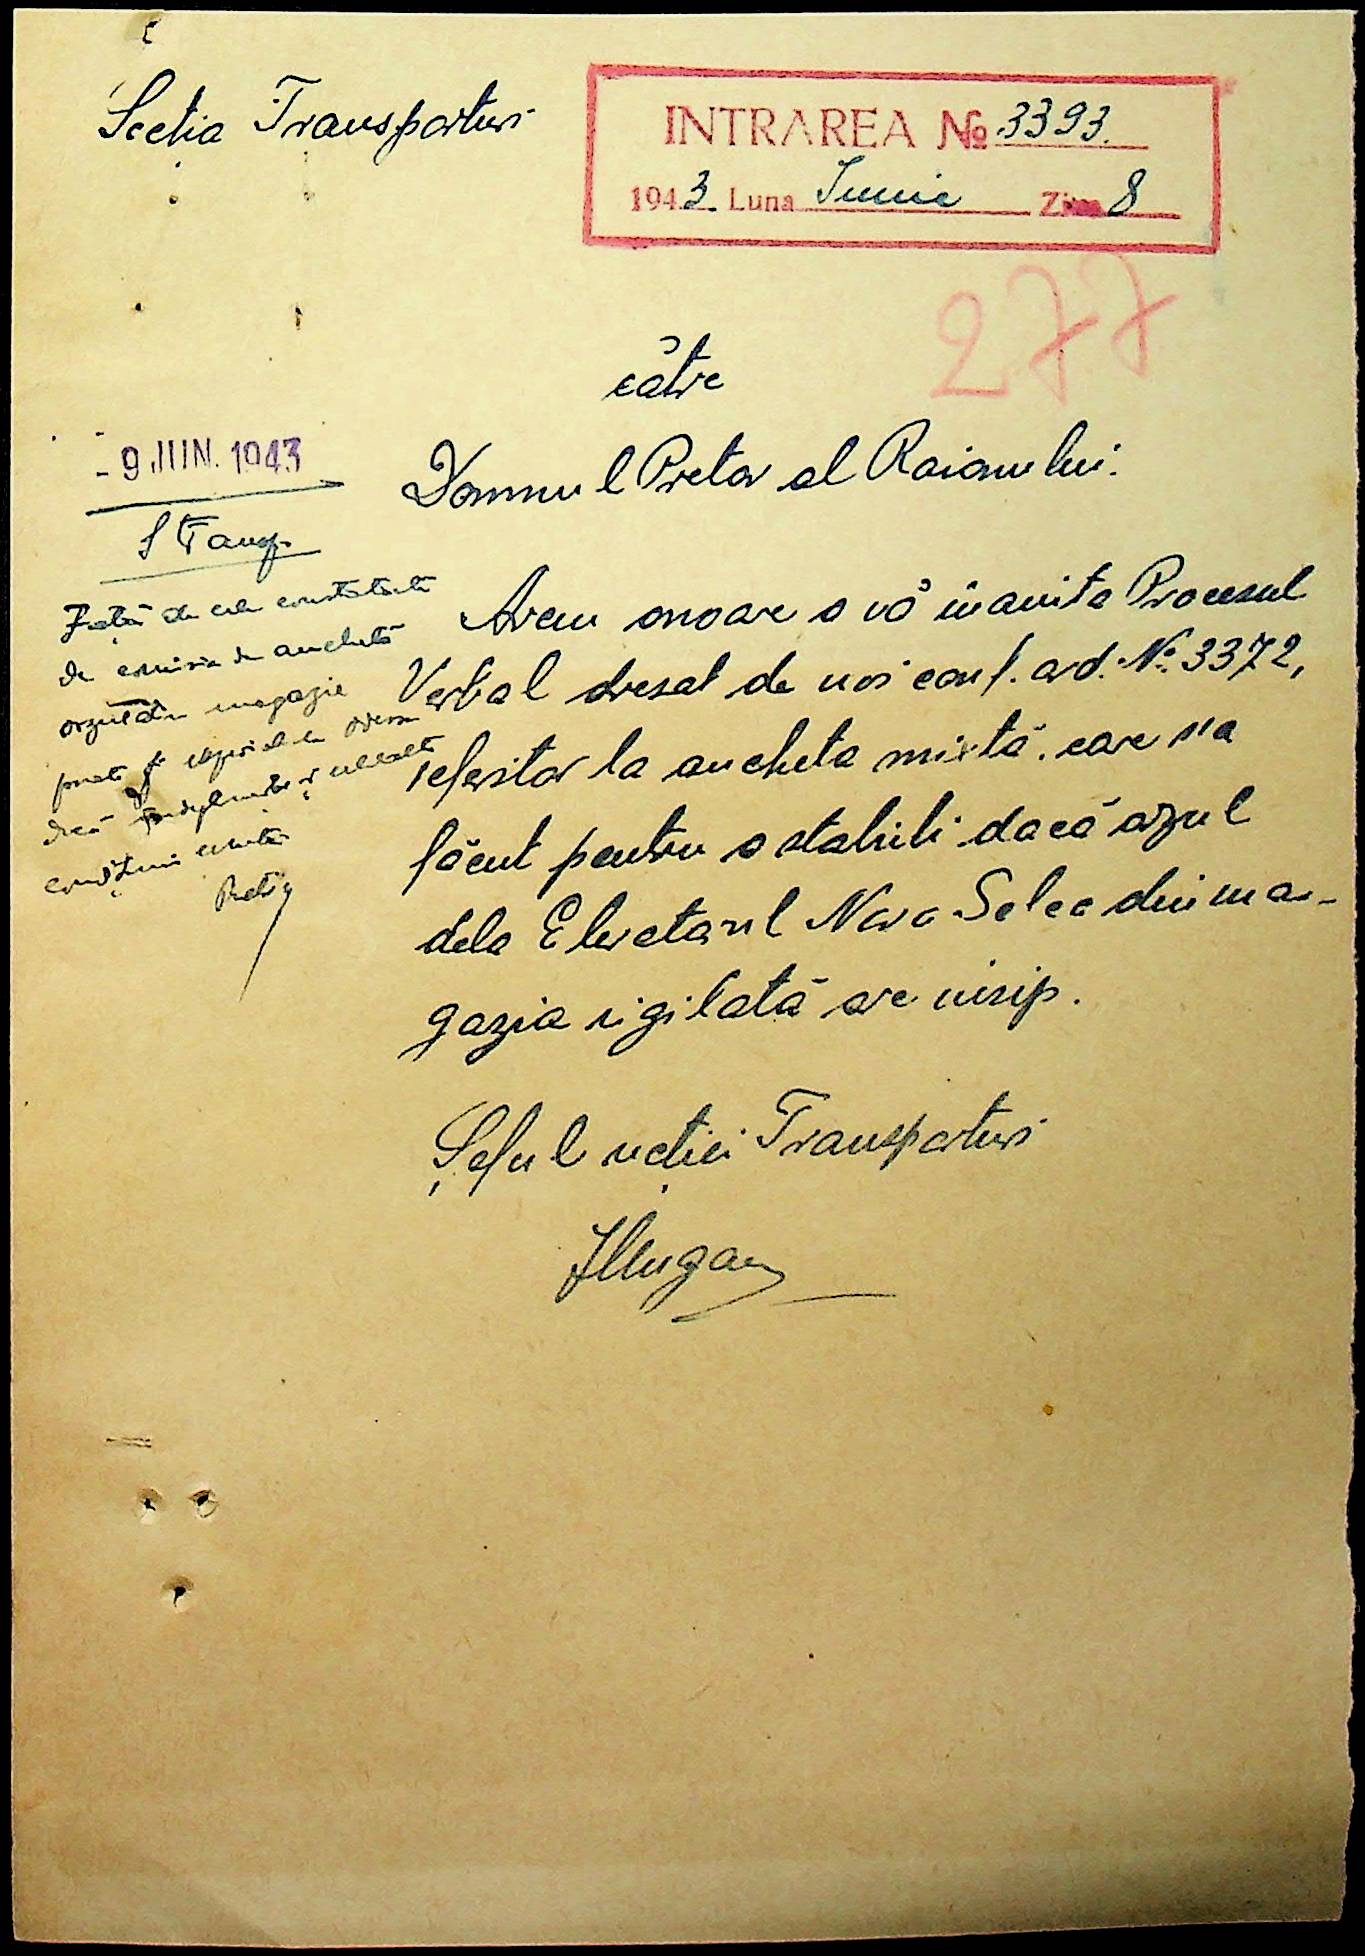 Secția Transporturi
INTRAREA No 3393.
1943. Luna Iunie Ziua 8
277
către
Domnul Pretor al Raionului.
- 9 JUN. 1943
S Transp.
Față de cele constatate
de comisia de anchetă
orzul din magazie
poate fi expediat la Odesa
dacă îndeplinește
condițiuni
Pretor
Avem onoare a vă înainta Procesul
Verbal dresat de noi conf. ord. No. 3372,
referitor la ancheta mixtă care s'a
făcut pentru a stabili dacă orzul
dela Elevatorul Nova Selca din ma-
gazia sigilată are nisip.
Șeful secției Transporturi